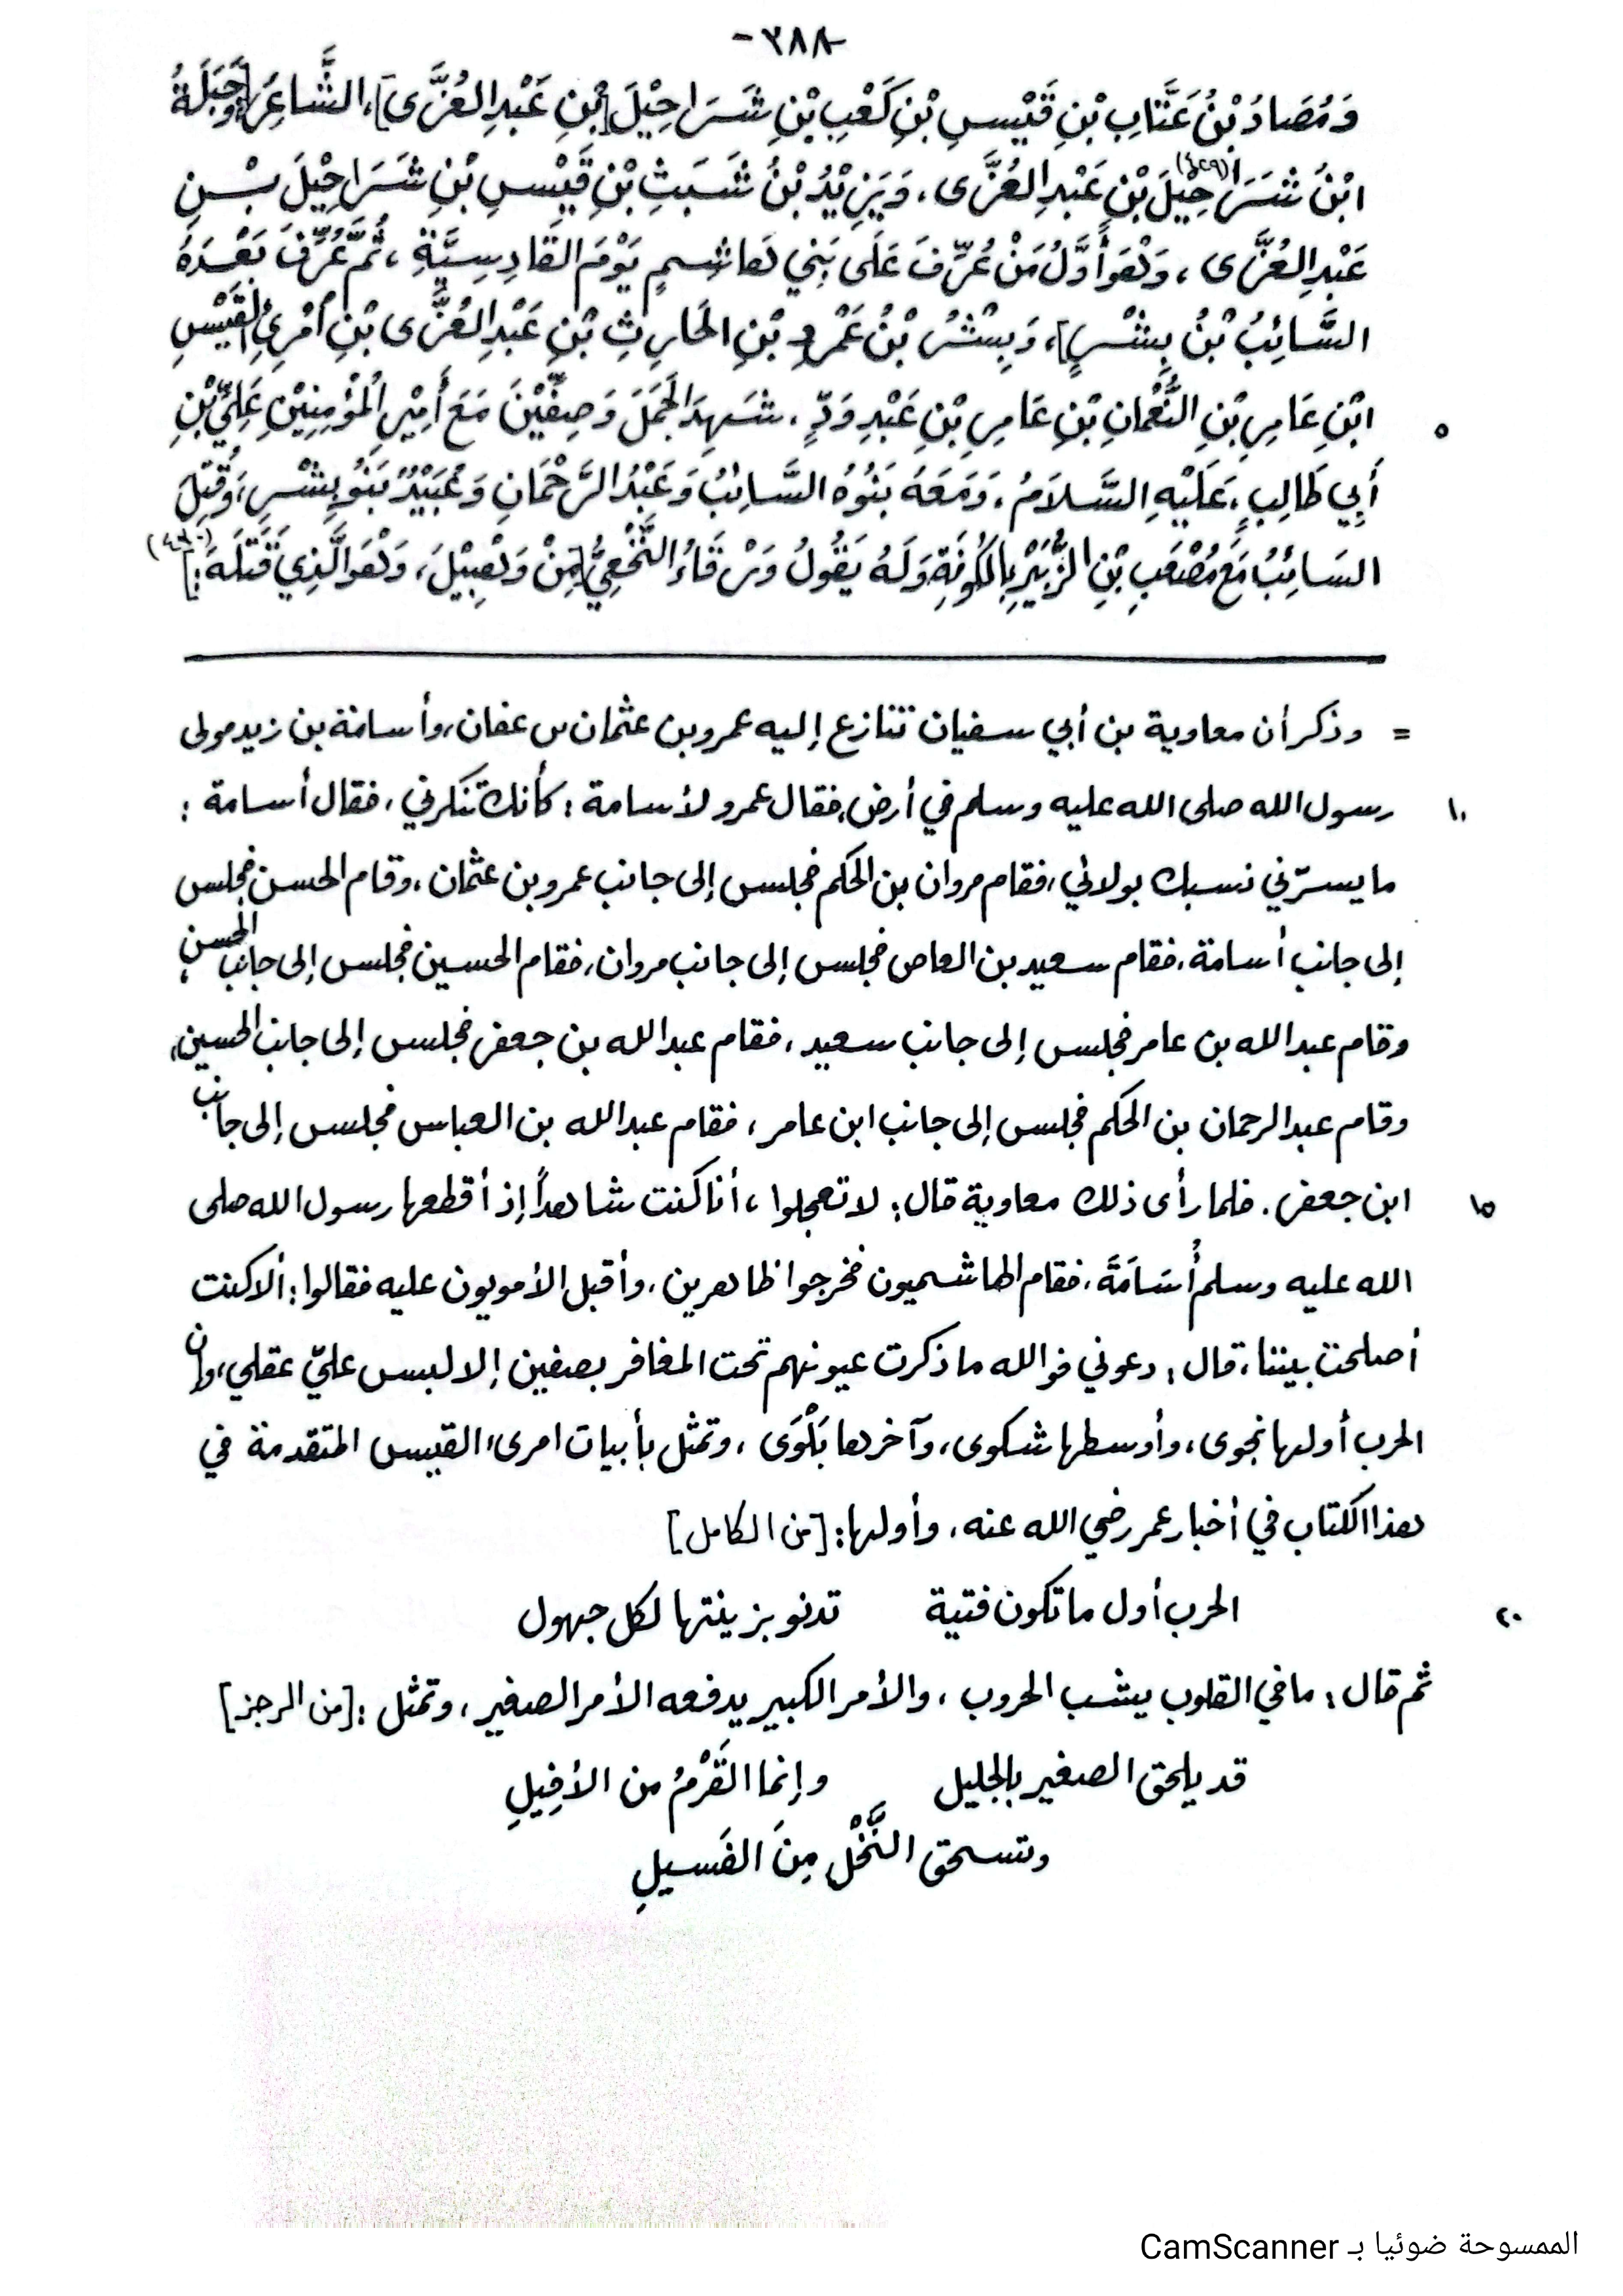 -٣٨٨-
وَمُصَادُ بْنُ عَتَّابِ بْنِ قَيْسِ بْنِ كَعْبِ بْنِ شَرَاحِيْلَ [بْنِ عَبْدِ العُزَّى]، الشَّاعِرُ، [وَجَبَلَةُ
ابْنُ شَرَاحِيْلَ(٤٢٩) بْنِ عَبْدِ العُزَّى، وَيَزِيْدُ بْنُ شَبَثِ بْنِ قَيْسِ بْنِ شَرَاحِيْلَ بْنِ
عَبْدِ العُزَّى، وَهُوَ أَوَّلُ مَنْ عُرِّفَ عَلَى بَنِي هَاشِمٍ يَوْمَ القَادِسِيَّةِ، ثُمَّ عُرِّفَ بَعْدَهُ
السَّائِبُ بْنُ بِشْرٍ]، وَبِشْرُ بْنُ عَمْرِو بْنِ الحَارِثِ بْنِ عَبْدِ العُزَّى بْنِ امْرِئِ القَيْسِ
ابْنِ عَامِرِ بْنِ النُّعْمَانِ بْنِ عَامِرِ بْنِ عَبْدِ وَدٍّ، شَهِدَ الجَمَلَ وَصِفِّيْنَ مَعَ أَمِيْرِ المُؤْمِنِيْنَ عَلِيِّ بْنِ ٥
أَبِي طَالِبٍ، عَلَيْهِ السَّلاَمُ، وَمَعَهُ بَنُوْهُ السَّائِبُ وَعَبْدُ الرَّحْمَانِ وَعُبَيْدٌ بَنُو بِشْرٍ، وَقُتِلَ
السَائِبُ مَعَ مُصْعَبِ بْنِ الزُّبَيْرِ بِالكُوفَةِ وَلَهُ يَقُولُ وَرْقَاءُ النَّخَعِيُّ [مِنْ وَهْبِيْلَ، وَهُوَ الَّذِي قَتَلَهُ:] (٤٣٠)
= وذكر أن معاوية بن أبي سفيان تنازع إليه عمرو بن عثمان بن عفان، وأسامة بن زيد مولى
رسول الله صلى الله عليه وسلم في أرض، فقال عمرو لأسامة: كأنك تنكرني، فقال أسامة: ١٠
ما يسرّني نسبك بولائي، فقام مروان بن الحكم فجلس إلى جانب عمرو بن عثمان، وقام الحسن فجلس
إلى جانب أسامة، فقام سعيد بن العاص فجلس إلى جانب مروان، فقام الحسين فجلس إلى جانب الحسن،
وقام عبد الله بن عامر فجلس إلى جانب سعيد، فقام عبد الله بن جعفر فجلس إلى جانب الحسين،
وقام عبد الرحمان بن الحكم فجلس إلى جانب ابن عامر، فقام عبد الله بن العباس فجلس إلى جانب
ابن جعفر. فلما رأى ذلك معاوية قال: لا تعجلوا، أنا كنت شاهداً إذ أقطعها رسول الله صلى ١٥
الله عليه وسلم أُسَامَةَ، فقام الهاشميون فخرجوا ظاهرين، وأقبل الأمويون عليه فقالوا: ألا كنت
أصلحت بيننا، قال: دعوني فوالله ما ذكرت عيونهم تحت المغافر بصفين إلا لبس عليّ عقلي، وإن
الحرب أولها نجوى، وأوسطها شكوى، وآخرها بَلْوَى، وتمثل بأبيات امرىء القيس المتقدمة في
هذا الكتاب في أخبار عمر رضي الله عنه، وأولها: [من الكامل]
الحرب أول ما تكون فتية تدنو بزينتها لكل جهول ٢٠
ثم قال: ما في القلوب يشب الحروب، والأمر الكبير يدفعه الأمر الصغير، وتمثل: [من الرجز]
قد يلحق الصغير بالجليل وإنما القَرْمُ من الأفِيلِ
وتسحق النَّخْلُ مِنَ الفَسيلِ
الممسوحة ضوئيا بـ CamScanner